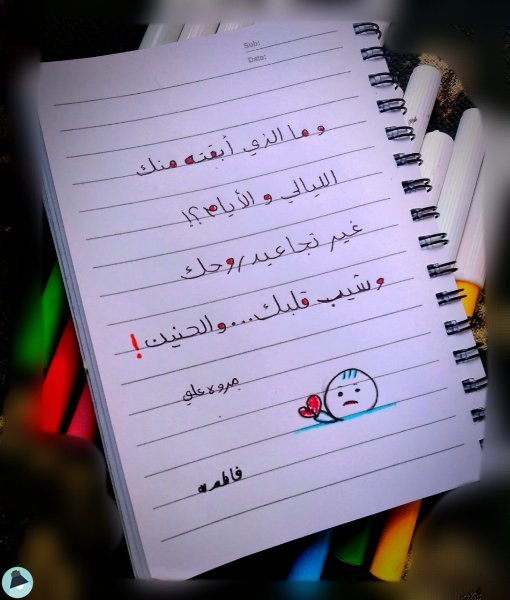 Sub:
Date:
و ما الذي أبقته منك
الليالي و الأيام؟!
غير تجاعيد روحك
وشيب قلبك...والحنين!
مروة علي
فاطمه